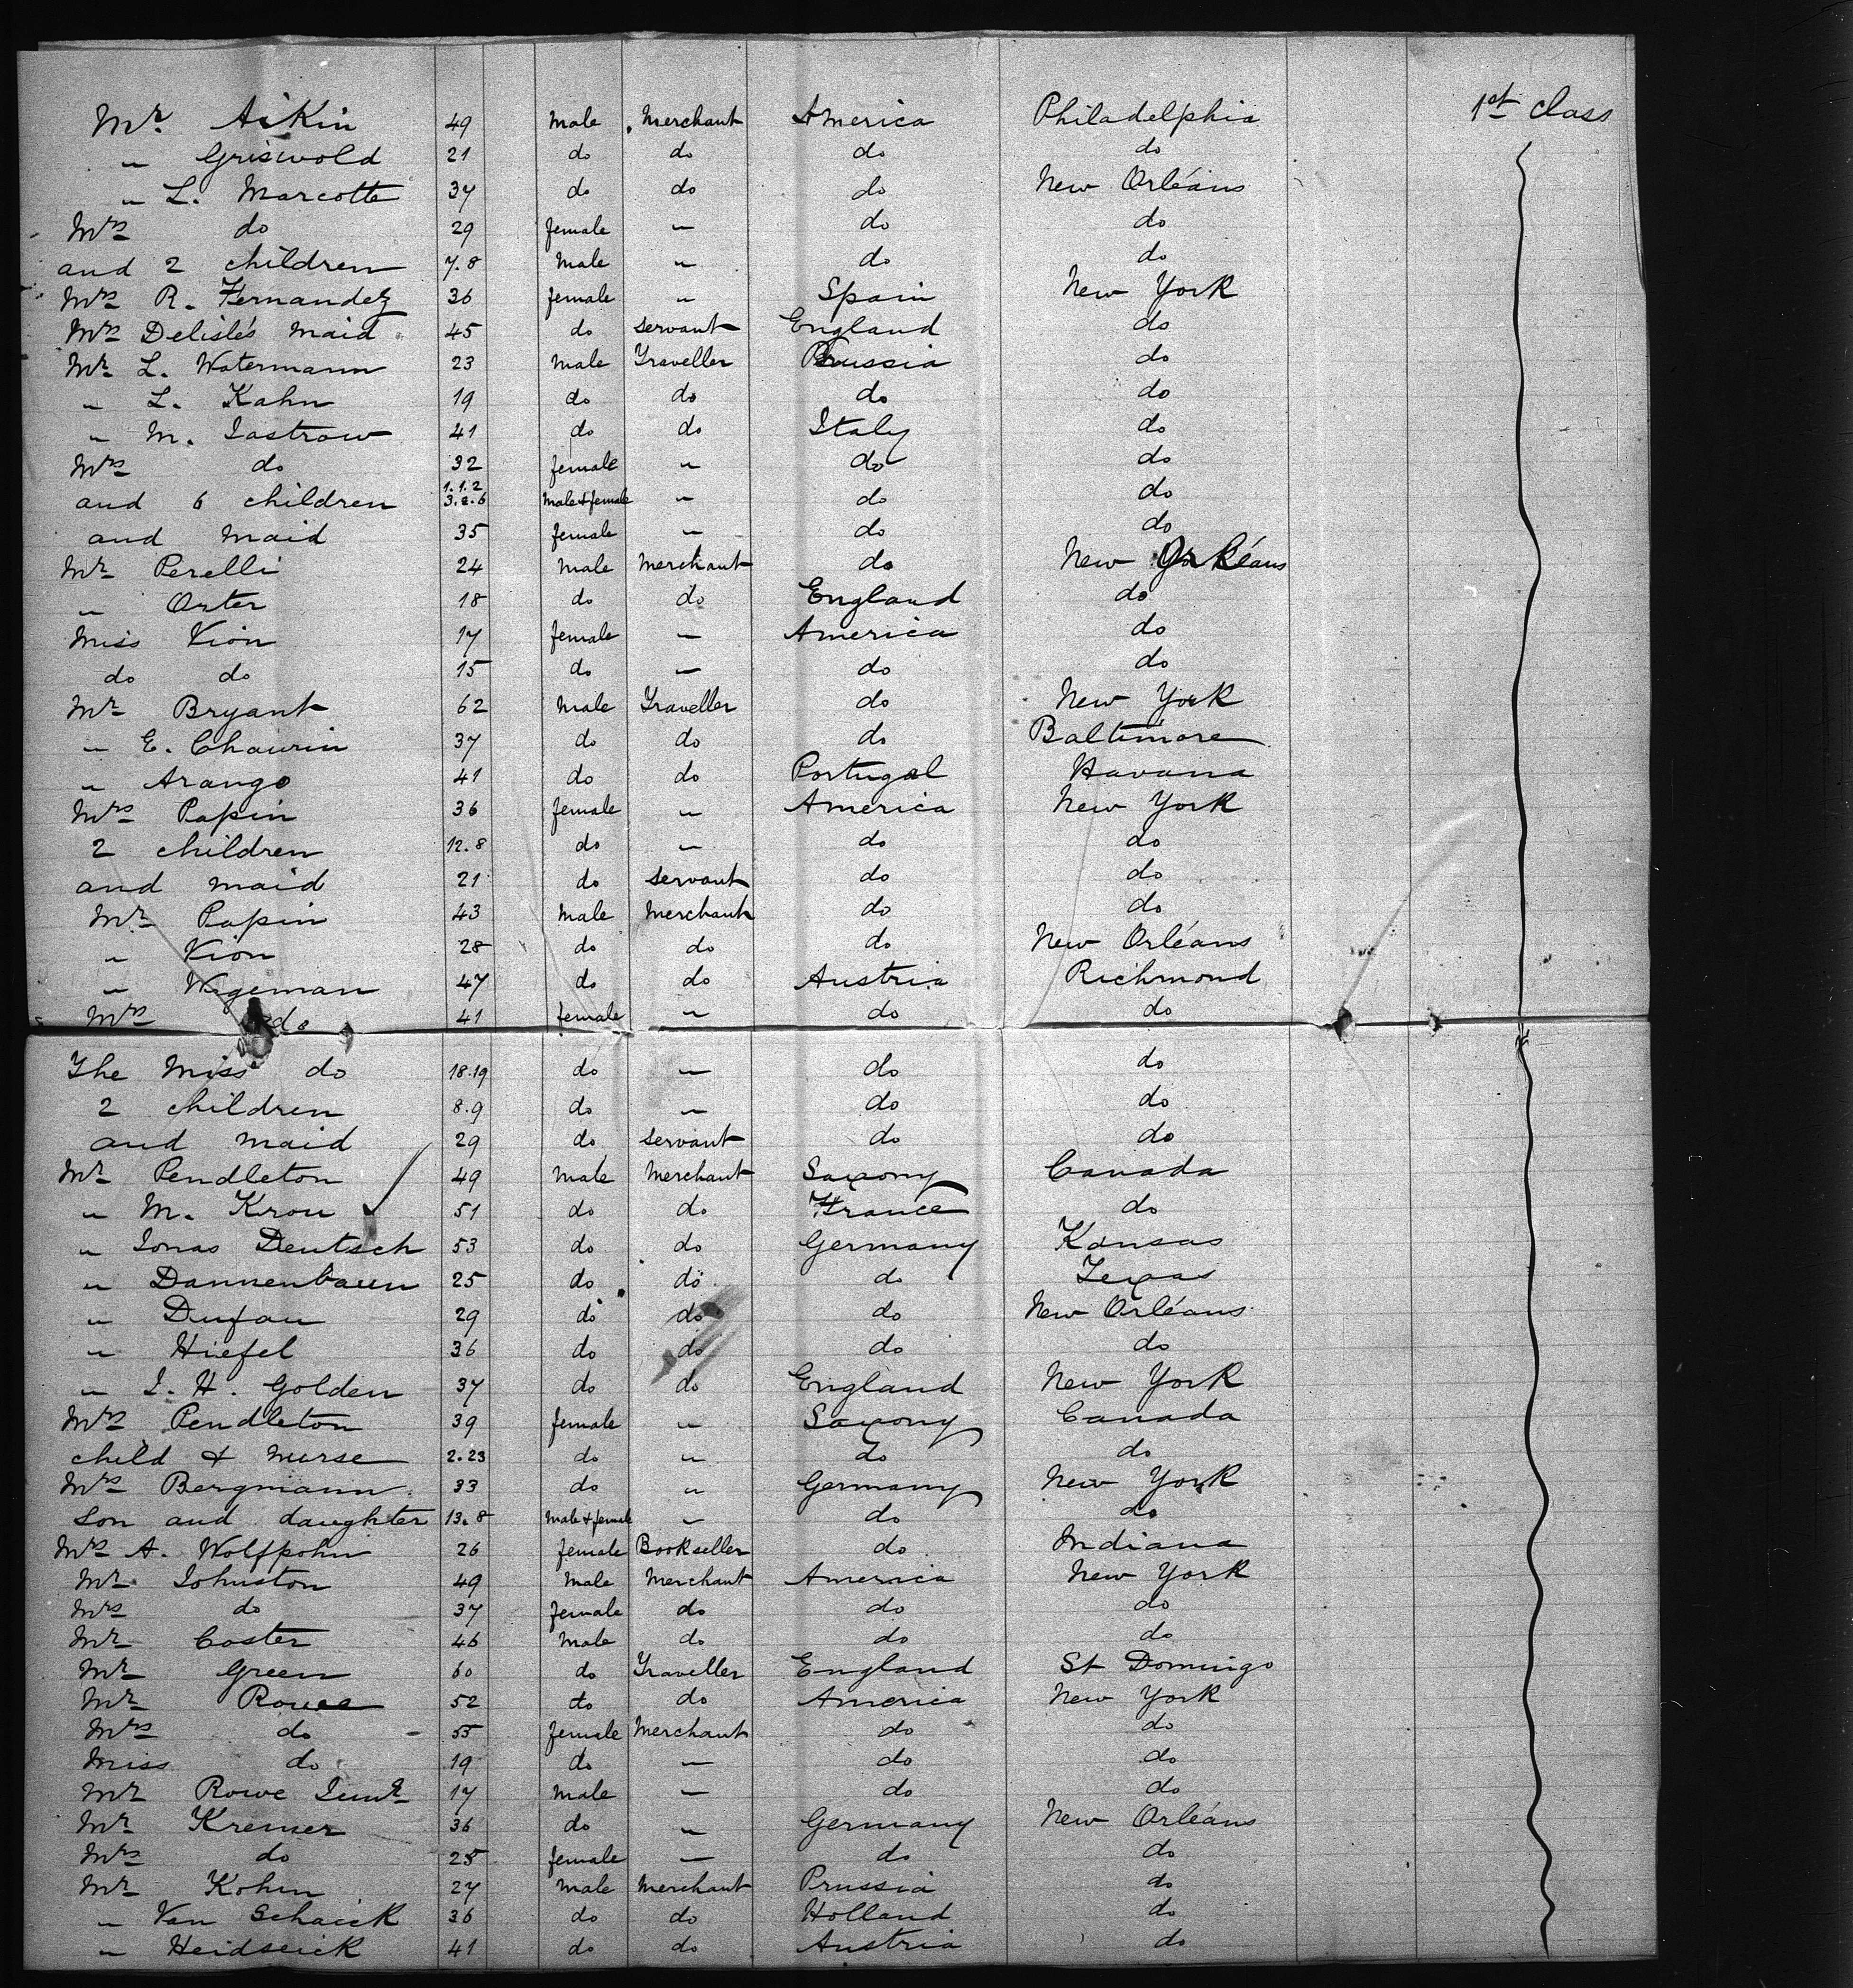 Mr. Aikin 49 Male Merchant America Philadelphia 1st Class
" Griswold 21 do do do do
" L. Marcotte 37 do do do New Orléans
Mrs do 29 female " do do
and 2 children 7.8 Male " do do
Mrs R. Fernandez 36 female " Spain New York
Mrs Delisle's maid 45 do servant England do
Mr L. Watermann 23 Male Traveller Prussia do
" L. Kahn 19 do do do do
" M. Jastrow 41 do do Italy do
Mrs do 32 female " do do
and 6 children 1.1.2 3.2.6 Male & female " do do
and maid 35 female " do do
Mr Perelli 24 Male Merchant do New Orléans
" Orter 18 do do England do
Miss Vion 17 female — America do
do do 15 do — do do
Mr Bryant 62 Male Traveller do New York
" E. Chaurin 37 do do do Baltimore
" Arango 41 do do Portugal Havana
Mrs Papin 36 female " America New York
2 children 12.8 do " do do
and maid 21 do servant do do
Mr Papin 43 Male Merchant do do
" Vion 28 do do do New Orléans
" Wageman 47 do do Austria Richmond
Mrs do 41 female " do do
The Miss do 18.19 do — do do
2 children 8.9 do " do do
and maid 29 do servant do do
Mr Pendleton 49 Male Merchant Saxony Canada
" M. Kron 51 do do France do
" Jonas Deutsch 53 do do Germany Kansas
" Dannenbaum 25 do do do Texas
" Dufau 29 do do do New Orléans
" Hiefel 36 do do do do
" J. H. Golden 37 do do England New York
Mrs Pendleton 39 female " Saxony Canada
child & nurse 2.23 do " do do
Mrs Bergmann 33 do " Germany New York
Son and daughter 13.8 Male & female " do do
Mrs A. Wolfpohn 26 female Bookseller do Indiana
Mr Johnston 49 Male Merchant America New York
Mrs do 37 female do do do
Mr Coster 46 Male do do do
Mr Green 60 do Traveller England St Domingo
Mr Rowe 52 do do America New York
Mrs do 55 female Merchant do do
Miss do 19 do — do do
Mr Rowe Junr 17 Male — do do
Mr Kremer 36 do " Germany New Orléans
Mrs do 25 female — do do
Mr Kohn 27 Male Merchant Prussia do
" Van Schaick 36 do do Holland do
" Heidseick 41 do do Austria do